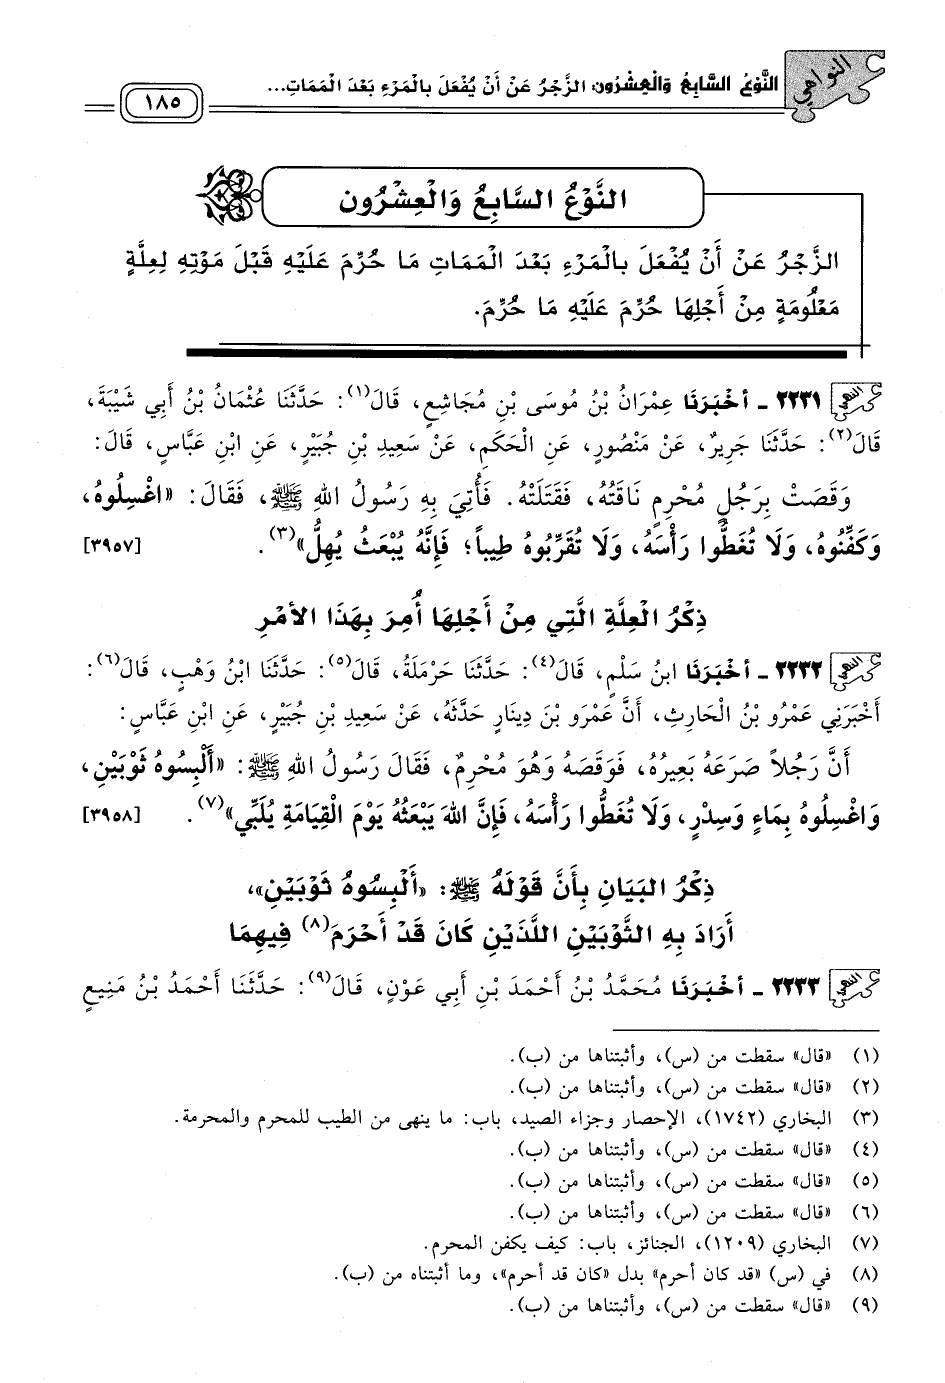 النواهي
النَّوْعُ السَّابِعُ وَالْعِشْرُون: الزَّجْرُ عَنْ أَنْ يُفْعَلَ بِالْمَرْءِ بَعْدَ الْمَمَاتِ...
١٨٥
النَّوْعُ السَّابِعُ وَالْعِشْرُون
الزَّجْرُ عَنْ أَنْ يُفْعَلَ بِالْمَرْءِ بَعْدَ الْمَمَاتِ مَا حُرِّمَ عَلَيْهِ قَبْلَ مَوْتِهِ لِعِلَّةٍ
مَعْلُومَةٍ مِنْ أَجْلِهَا حُرِّمَ عَلَيْهِ مَا حُرِّمَ.
٢٢٣١ - أَخْبَرَنَا عِمْرَانُ بْنُ مُوسَى بْنِ مُجَاشِعٍ، قَالَ(١): حَدَّثَنَا عُثْمَانُ بْنُ أَبِي شَيْبَةَ،
قَالَ(٢): حَدَّثَنَا جَرِيرٌ، عَنْ مَنْصُورٍ، عَنِ الْحَكَمِ، عَنْ سَعِيدِ بْنِ جُبَيْرٍ، عَنِ ابْنِ عَبَّاسٍ، قَالَ:
وَقَصَتْ بِرَجُلٍ مُحْرِمٍ نَاقَتُهُ، فَقَتَلَتْهُ. فَأُتِيَ بِهِ رَسُولُ اللهِ ﷺ، فَقَالَ: «اغْسِلُوهُ،
وَكَفِّنُوهُ، وَلَا تُغَطُّوا رَأْسَهُ، وَلَا تُقَرِّبُوهُ طِيباً؛ فَإِنَّهُ يُبْعَثُ يُهِلُّ»(٣). [٣٩٥٧]
ذِكْرُ الْعِلَّةِ الَّتِي مِنْ أَجْلِهَا أُمِرَ بِهَذَا الأَمْرِ
٢٢٣٢ - أَخْبَرَنَا ابنُ سَلْمٍ، قَالَ(٤): حَدَّثَنَا حَرْمَلَةُ، قَالَ(٥): حَدَّثَنَا ابْنُ وَهْبٍ، قَالَ(٦):
أَخْبَرَنِي عَمْرُو بْنُ الْحَارِثِ، أَنَّ عَمْرَو بْنَ دِينَارٍ حَدَّثَهُ، عَنْ سَعِيدِ بْنِ جُبَيْرٍ، عَنِ ابْنِ عَبَّاسٍ:
أَنَّ رَجُلاً صَرَعَهُ بَعِيرُهُ، فَوَقَصَهُ وَهُوَ مُحْرِمٌ، فَقَالَ رَسُولُ اللهِ ﷺ: «أَلْبِسُوهُ ثَوْبَيْنِ،
وَاغْسِلُوهُ بِمَاءٍ وَسِدْرٍ، وَلَا تُغَطُّوا رَأْسَهُ، فَإِنَّ اللهَ يَبْعَثُهُ يَوْمَ الْقِيَامَةِ يُلَبِّي»(٧). [٣٩٥٨]
ذِكْرُ الْبَيَانِ بِأَنَّ قَوْلَهُ ﷺ: «أَلْبِسُوهُ ثَوْبَيْنِ»،
أَرَادَ بِهِ الثَّوْبَيْنِ اللَّذَيْنِ كَانَ قَدْ أَحْرَمَ(٨) فِيهِمَا
٢٢٣٣ - أَخْبَرَنَا مُحَمَّدُ بْنُ أَحْمَدَ بْنِ أَبِي عَوْنٍ، قَالَ(٩): حَدَّثَنَا أَحْمَدُ بْنُ مَنِيعٍ
(١) «قال» سقطت من (س)، وأثبتناها من (ب).
(٢) «قال» سقطت من (س)، وأثبتناها من (ب).
(٣) البخاري (١٧٤٢)، الإحصار وجزاء الصيد، باب: ما ينهى من الطيب للمحرم والمحرمة.
(٤) «قال» سقطت من (س)، وأثبتناها من (ب).
(٥) «قال» سقطت من (س)، وأثبتناها من (ب).
(٦) «قال» سقطت من (س)، وأثبتناها من (ب).
(٧) البخاري (١٢٠٩)، الجنائز، باب: كيف يكفن المحرم.
(٨) في (س) «قد كان أحرم» بدل «كان قد أحرم»، وما أثبتناه من (ب).
(٩) «قال» سقطت من (س)، وأثبتناها من (ب).